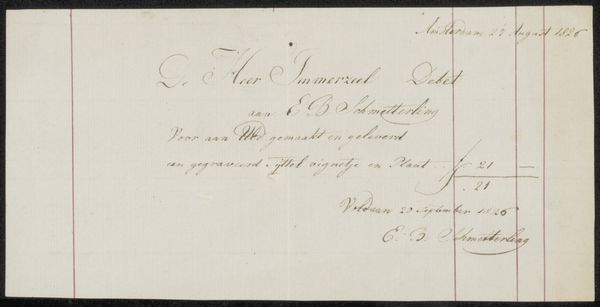 Amsterdam 27 August 1826
De Heer Immerzeel Debet
aan E B Schmetterling
Voor aan UEd gemaakt en geleverd
een gegraveerd Tyttel vignetje en Plaat .. ƒ 21 —
21
Voldaan 29 September 1826
E. B. Schmetterling